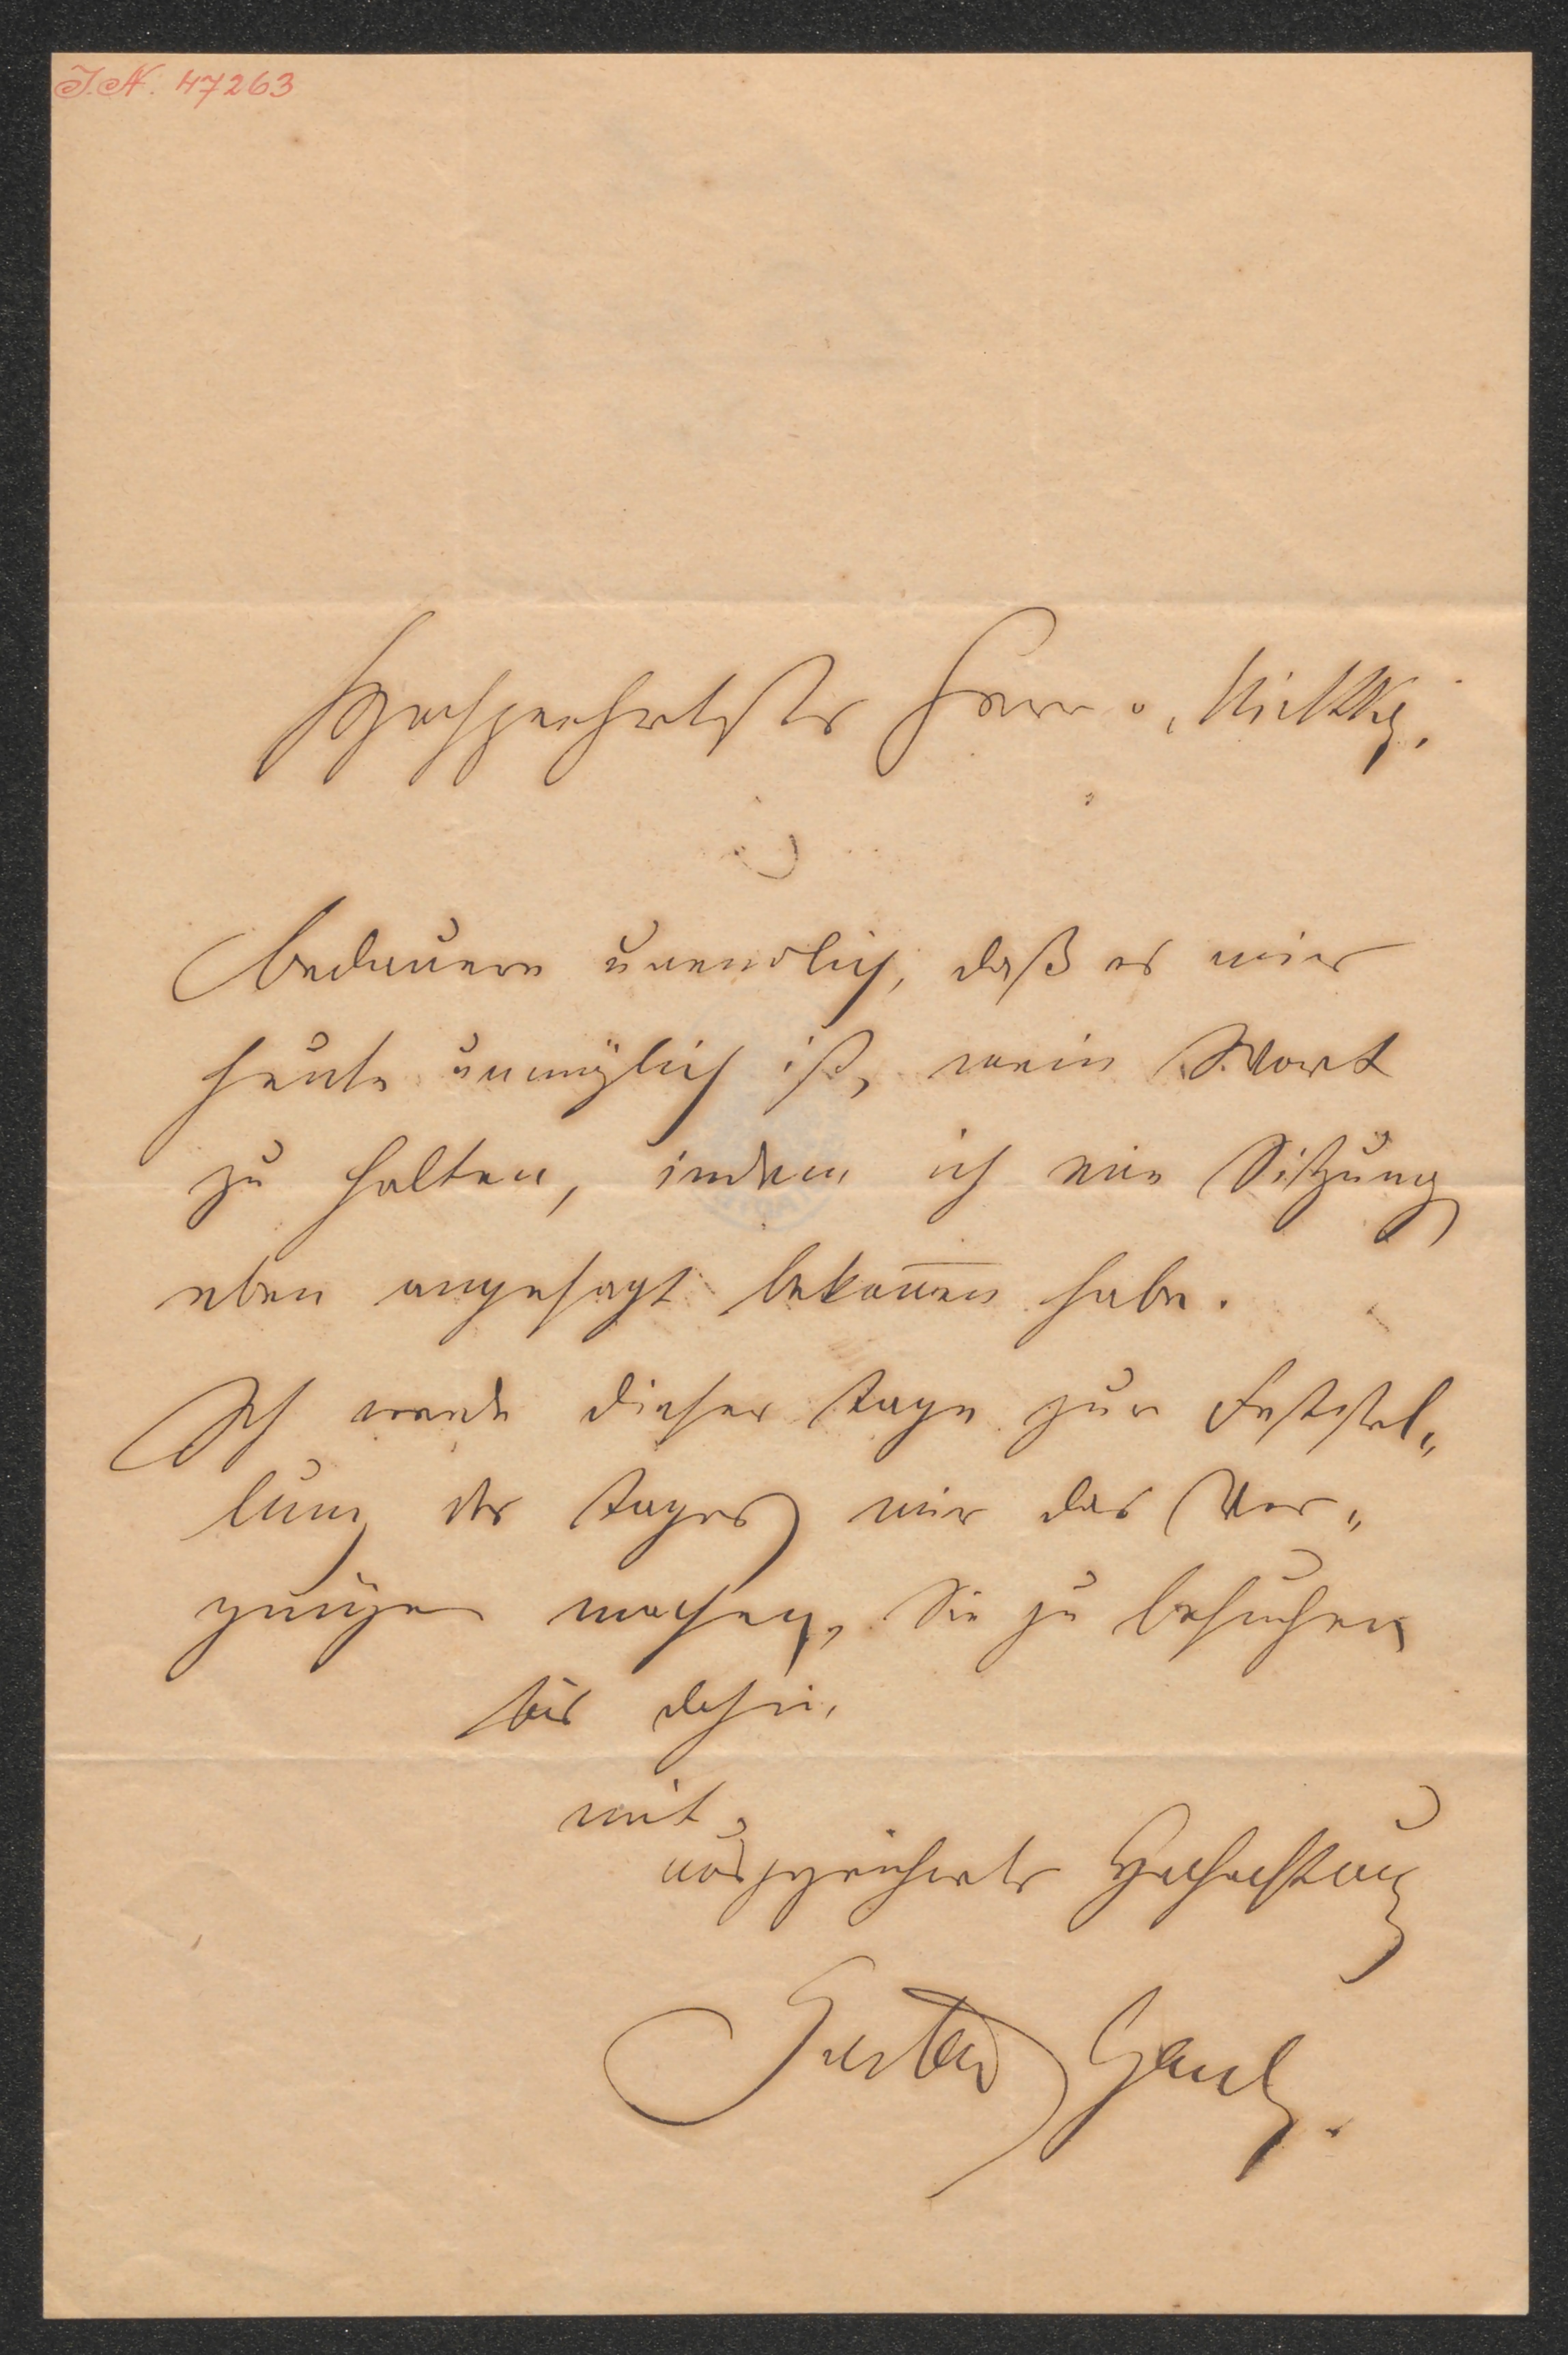 J.N. 47263
Hochgeehrtester Herr v.
Bedauere unendlich, daß es mir
heute unmöglich ist, mein Wort
zu halten, indem ich eine Sitzung
eben angesagt bekom̅en habe.
Ich werde dieser Tage zur Feststel„
lung des Tages mir das Ver„
gnügen machen, Sie zu besuchen
bis dahin,
mit
ausgezeichneter Hochachtung
Gustav Gaul.